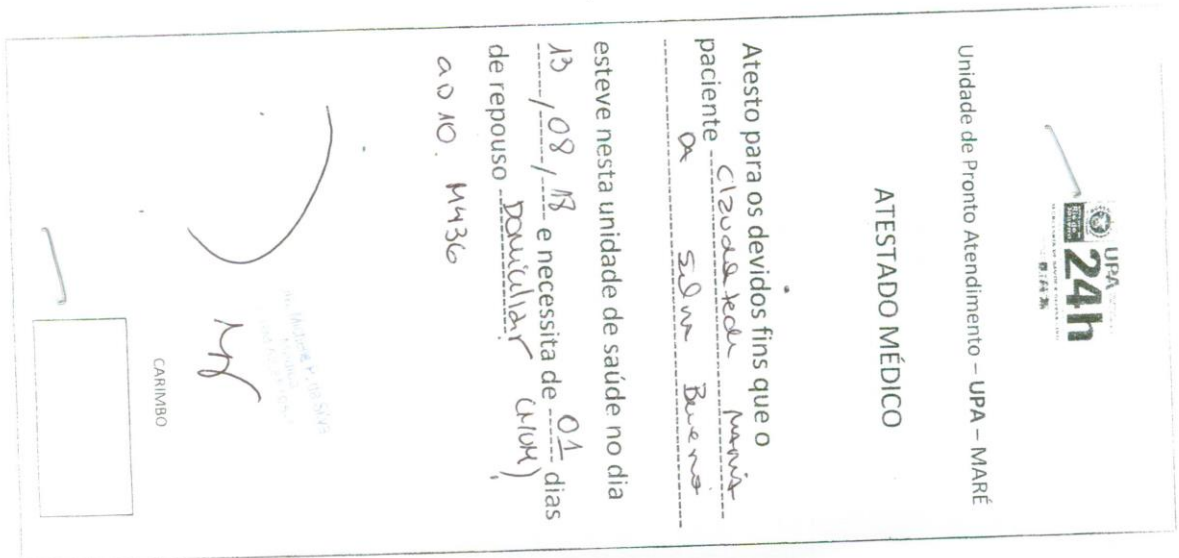 UPA
24h
Unidade de Pronto Atendimento – UPA – MARÉ
ATESTADO MÉDICO
Atesto para os devidos fins que o
paciente Maria
da Silva
esteve nesta unidade de saúde no dia
13 / 08 / 18 e necessita de 01 dias
de repouso Domiciliar
M436
CARIMBO